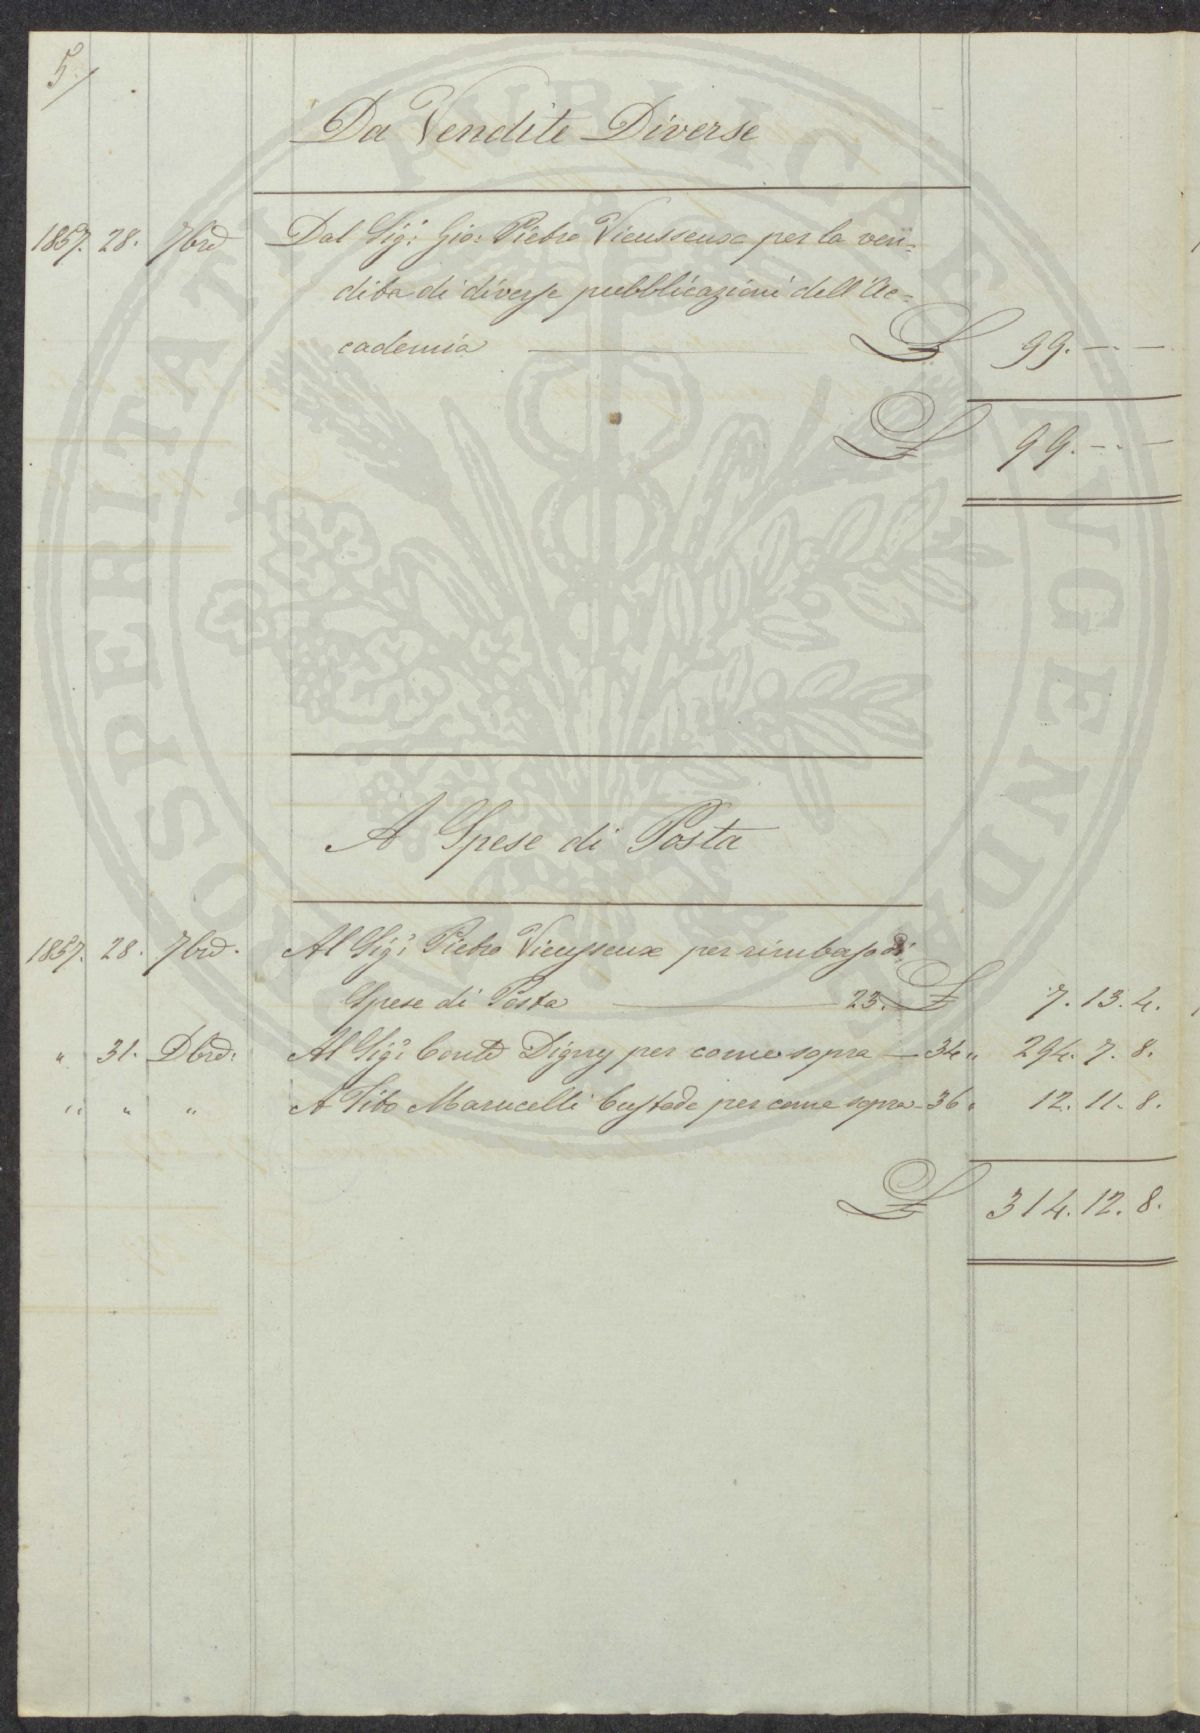 5/
Da Vendite Diverse
1857. 28. 7bre Dal Sig: Gio: Pietro Vieusseux per la ven=
dita di diverse pubblicazioni dell'Ac=
cademia £ 99. — —
£ 99. — —
A Spese di Posta
1857. 28. 7bre. Al Sig: Pietro Vieusseux per rimborso di
Spese di Posta 23. £ 7. 13. 4.
" 31. Dbre. Al Sig: Conte Digny per come sopra — 34 " 294. 7. 8.
" " " A Tito Marucelli Custode per come sopra - 36 " 12. 11. 8.
£ 314. 12. 8.
PROSPERITATI PUBLICAE AUGENDAE